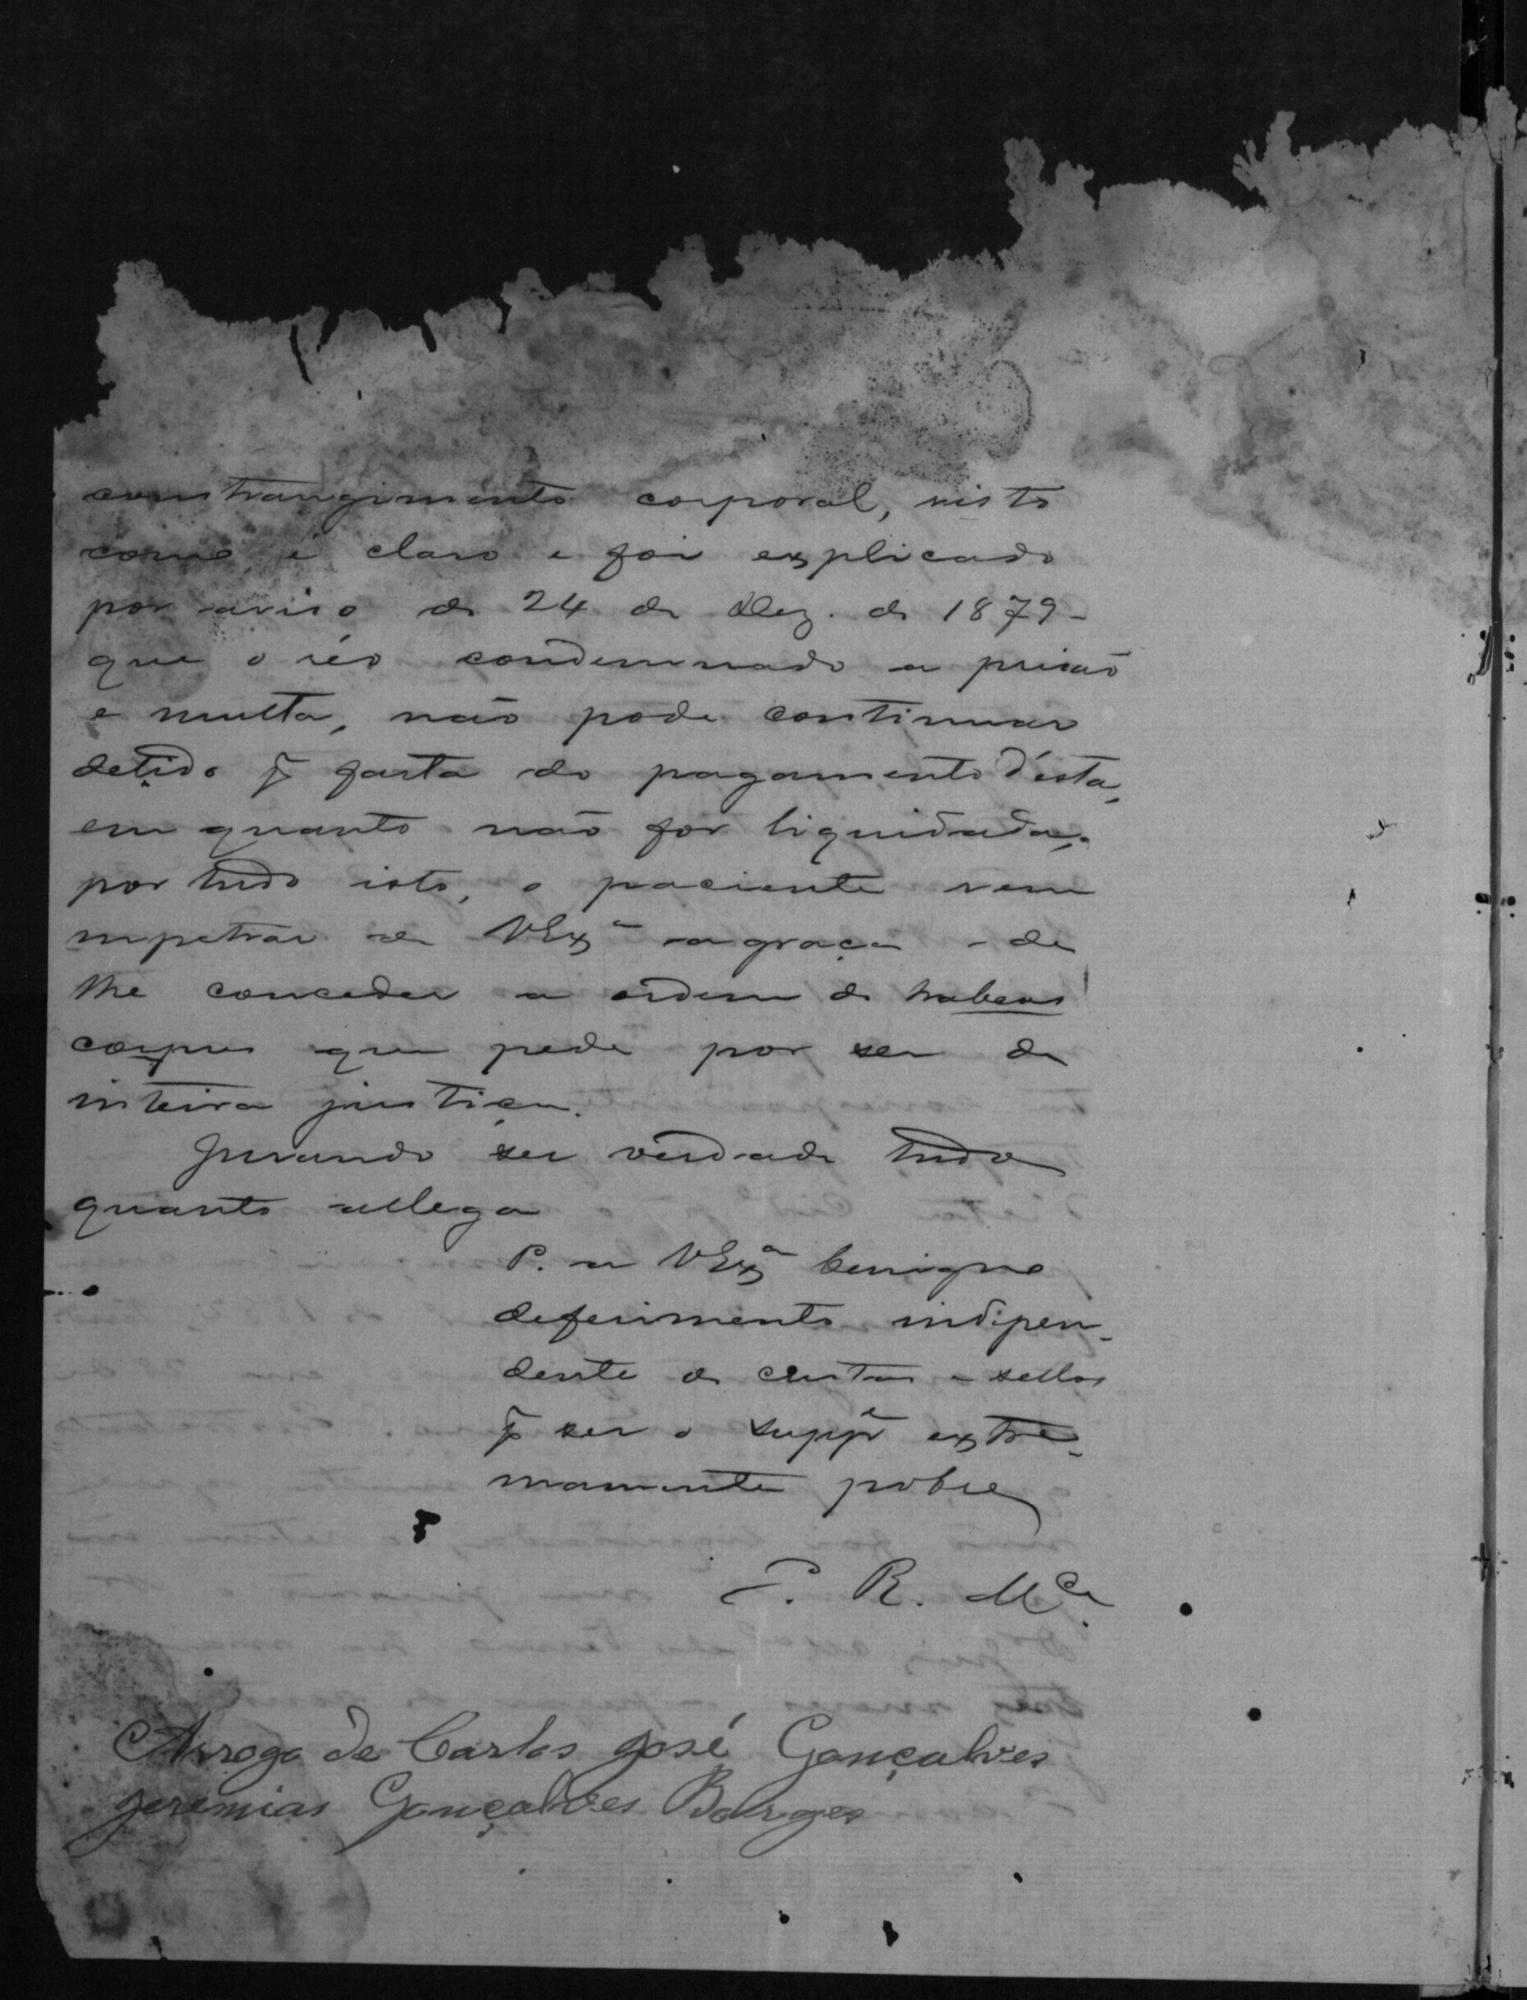 constrangimento corporal, visto
como é claro e foi explicado
por aviso de 24 de Dez. de 1879 -
que o réo condemnado a prisão
e multa, não pode continuar
detido p̃ falta do pagamento d'esta,
em quanto não for liquidada;
por tudo isto, o paciente vem
impetrar de VExª a graça de
lhe conceder a ordem de habeas
corpus que pede por ser de
inteira justiça.
Jurando ser verdade tudo
quanto allega
P. a VExª benigno
deferimento indipen-
dente de custas e sellos
p̃ ser o suppe extre-
mamente pobre
E. R. Mce.
Arrogo de Carlos José Gonçalves
Jeremias Gonçalves Borges